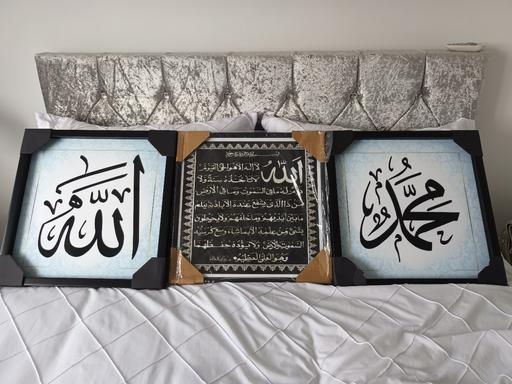 اللّٰه
بسم الله الرحمن الرحيم
اللّٰه لَا إِلَهَ إِلَّا هُوَ الْحَيُّ الْقَيُّومُ
لَا تَأْخُذُهُ سِنَةٌ وَلَا
نَوْمٌ لَهُ مَا فِي السَّمَوَتِ وَمَا فِي الْأَرْضِ
مَنْ ذَا الَّذِي يَشْفَعُ عِنْدَهُ إِلَّا بِإِذْنِهِ يَعْلَمُ
مَا بَيْنَ أَيْدِيهِمْ وَمَا خَلْفَهُمْ وَلَا يُحِيطُونَ
بِشَيْءٍ مِنْ عِلْمِهِ إِلَّا بِمَا شَاءَ وَسِعَ كُرْسِيُّهُ
السَّمَوَتِ وَالْأَرْضَ وَلَا يَؤُدُهُ حِفْظُهُمَا
وَهُوَ الْعَلِيُّ الْعَظِيمُ
مُحَمَّد